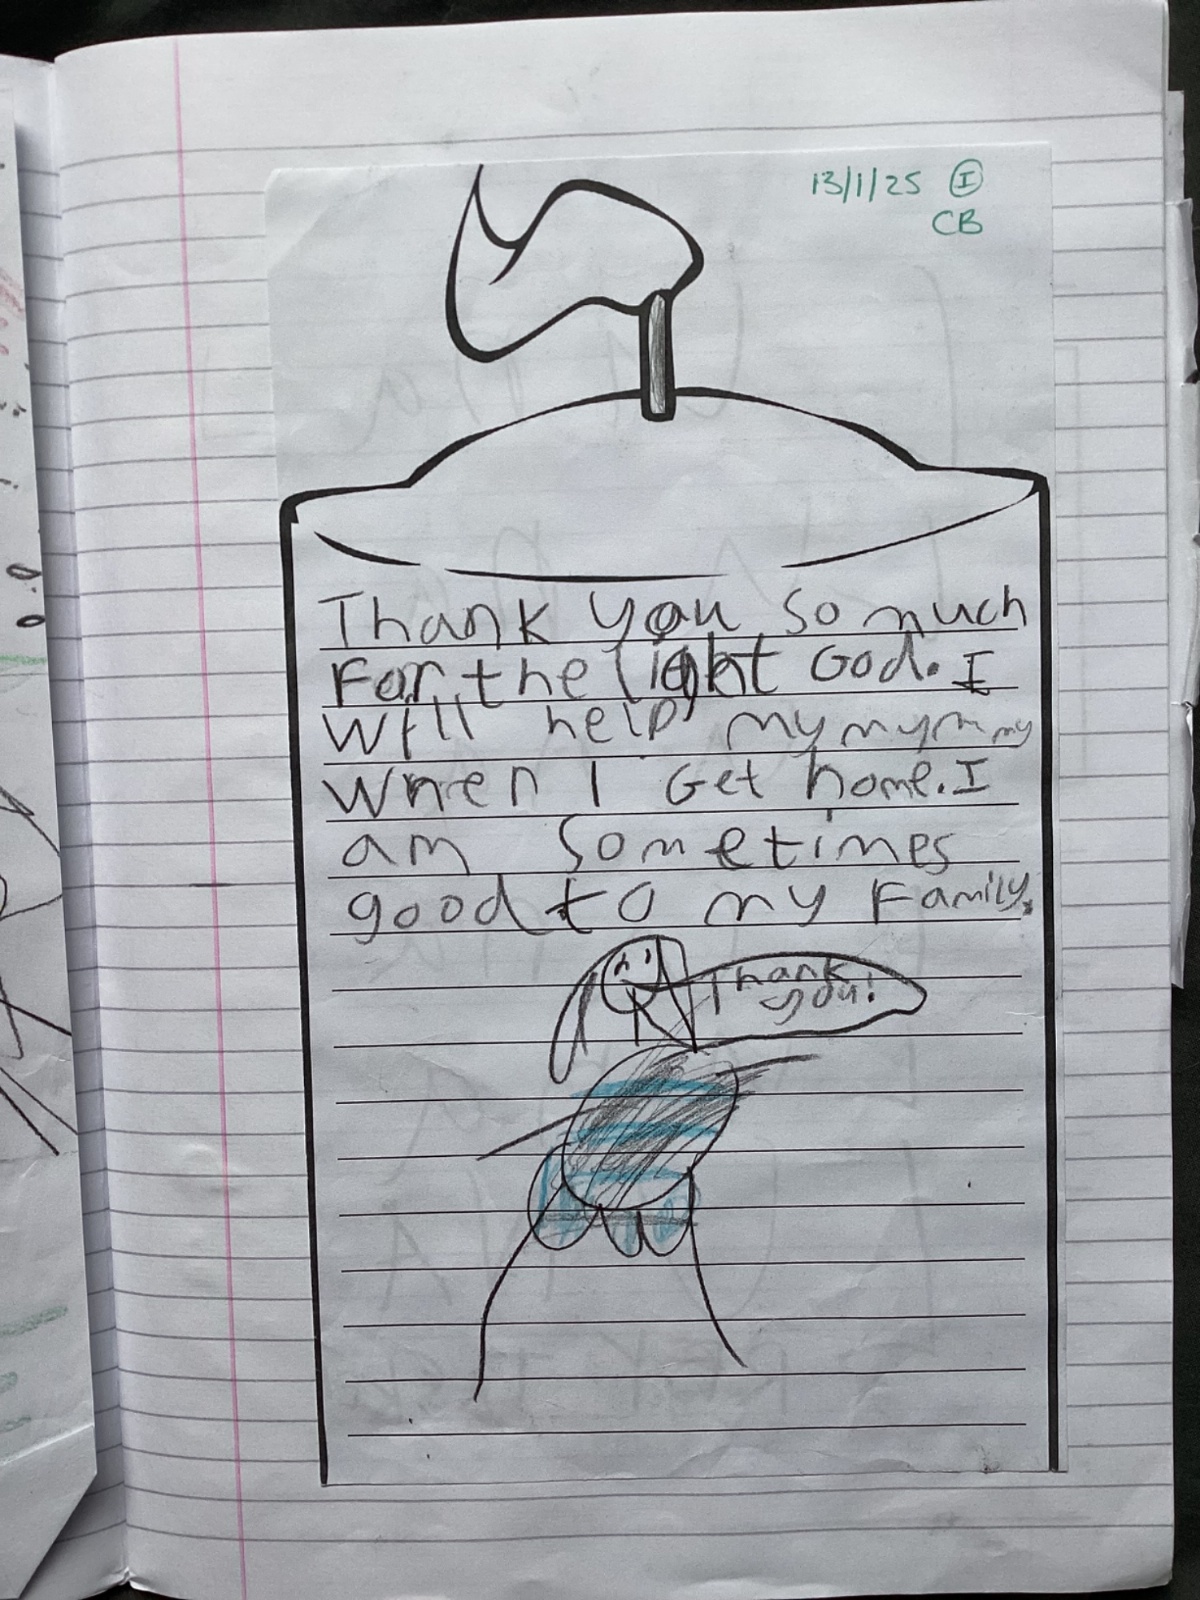 13/1/25 I
CB
Thank you so much
For the light God. I
will help my mymmy
when I Get home. I
am sometimes
good to my Family.
Thank
you!